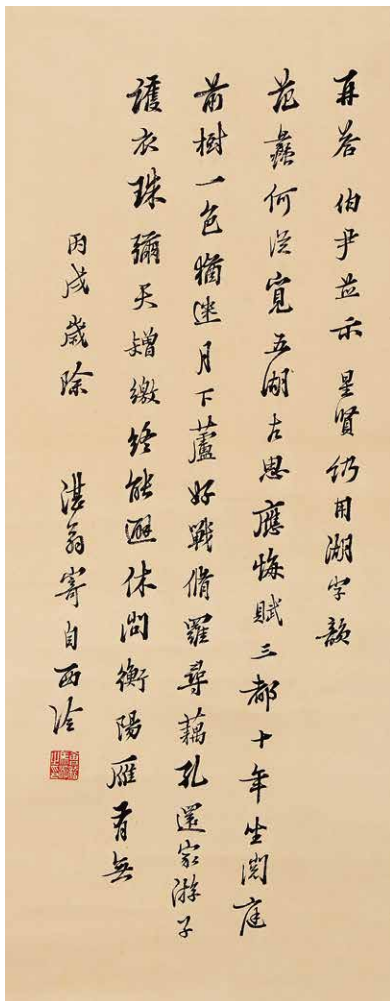 再答伯尹並示星賢仍用湖字韻
范蠡何從覓五湖古思應悔賦三都十年坐閱庭
前樹一色猶迷月下蘆好戰脩羅尋藕孔還家游子
護衣珠彌天矰繳終能避休問衡陽雁有無
丙戌歲除 湛翁寄自西泠